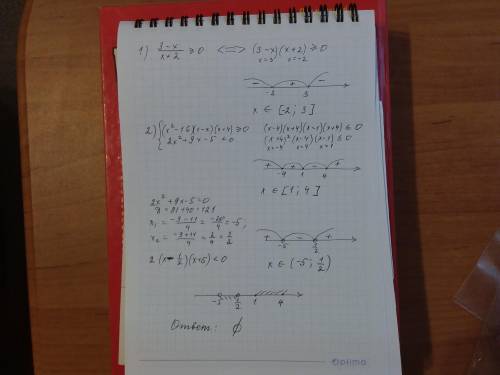 1) (3-x)/(x+2) ≥ 0 <=> (3-x)(x+2) ≥ 0
x=3 x=-2
- + -
-2 3
x ∈ [-2; 3]
2) { (x²-16)(1-x)(x+4) ≥ 0
2x²+9x-5 < 0
(x-4)(x+4)(x-1)(x+4) ≤ 0
(x+4)²(x-4)(x-1) ≤ 0
x=-4 x=4 x=1
+ + - +
-4 1 4
x ∈ [1; 4]
2x²+9x-5=0
D = 81+40=121
x₁ = (-9-11)/4 = -20/4 = -5;
x₂ = (-9+11)/4 = 2/4 = 1/2
+ - +
-5 1/2
2(x-1/2)(x+5) < 0
x ∈ (-5; 1/2)
-5 1/2 1 4
Ответ: ∅
Optima